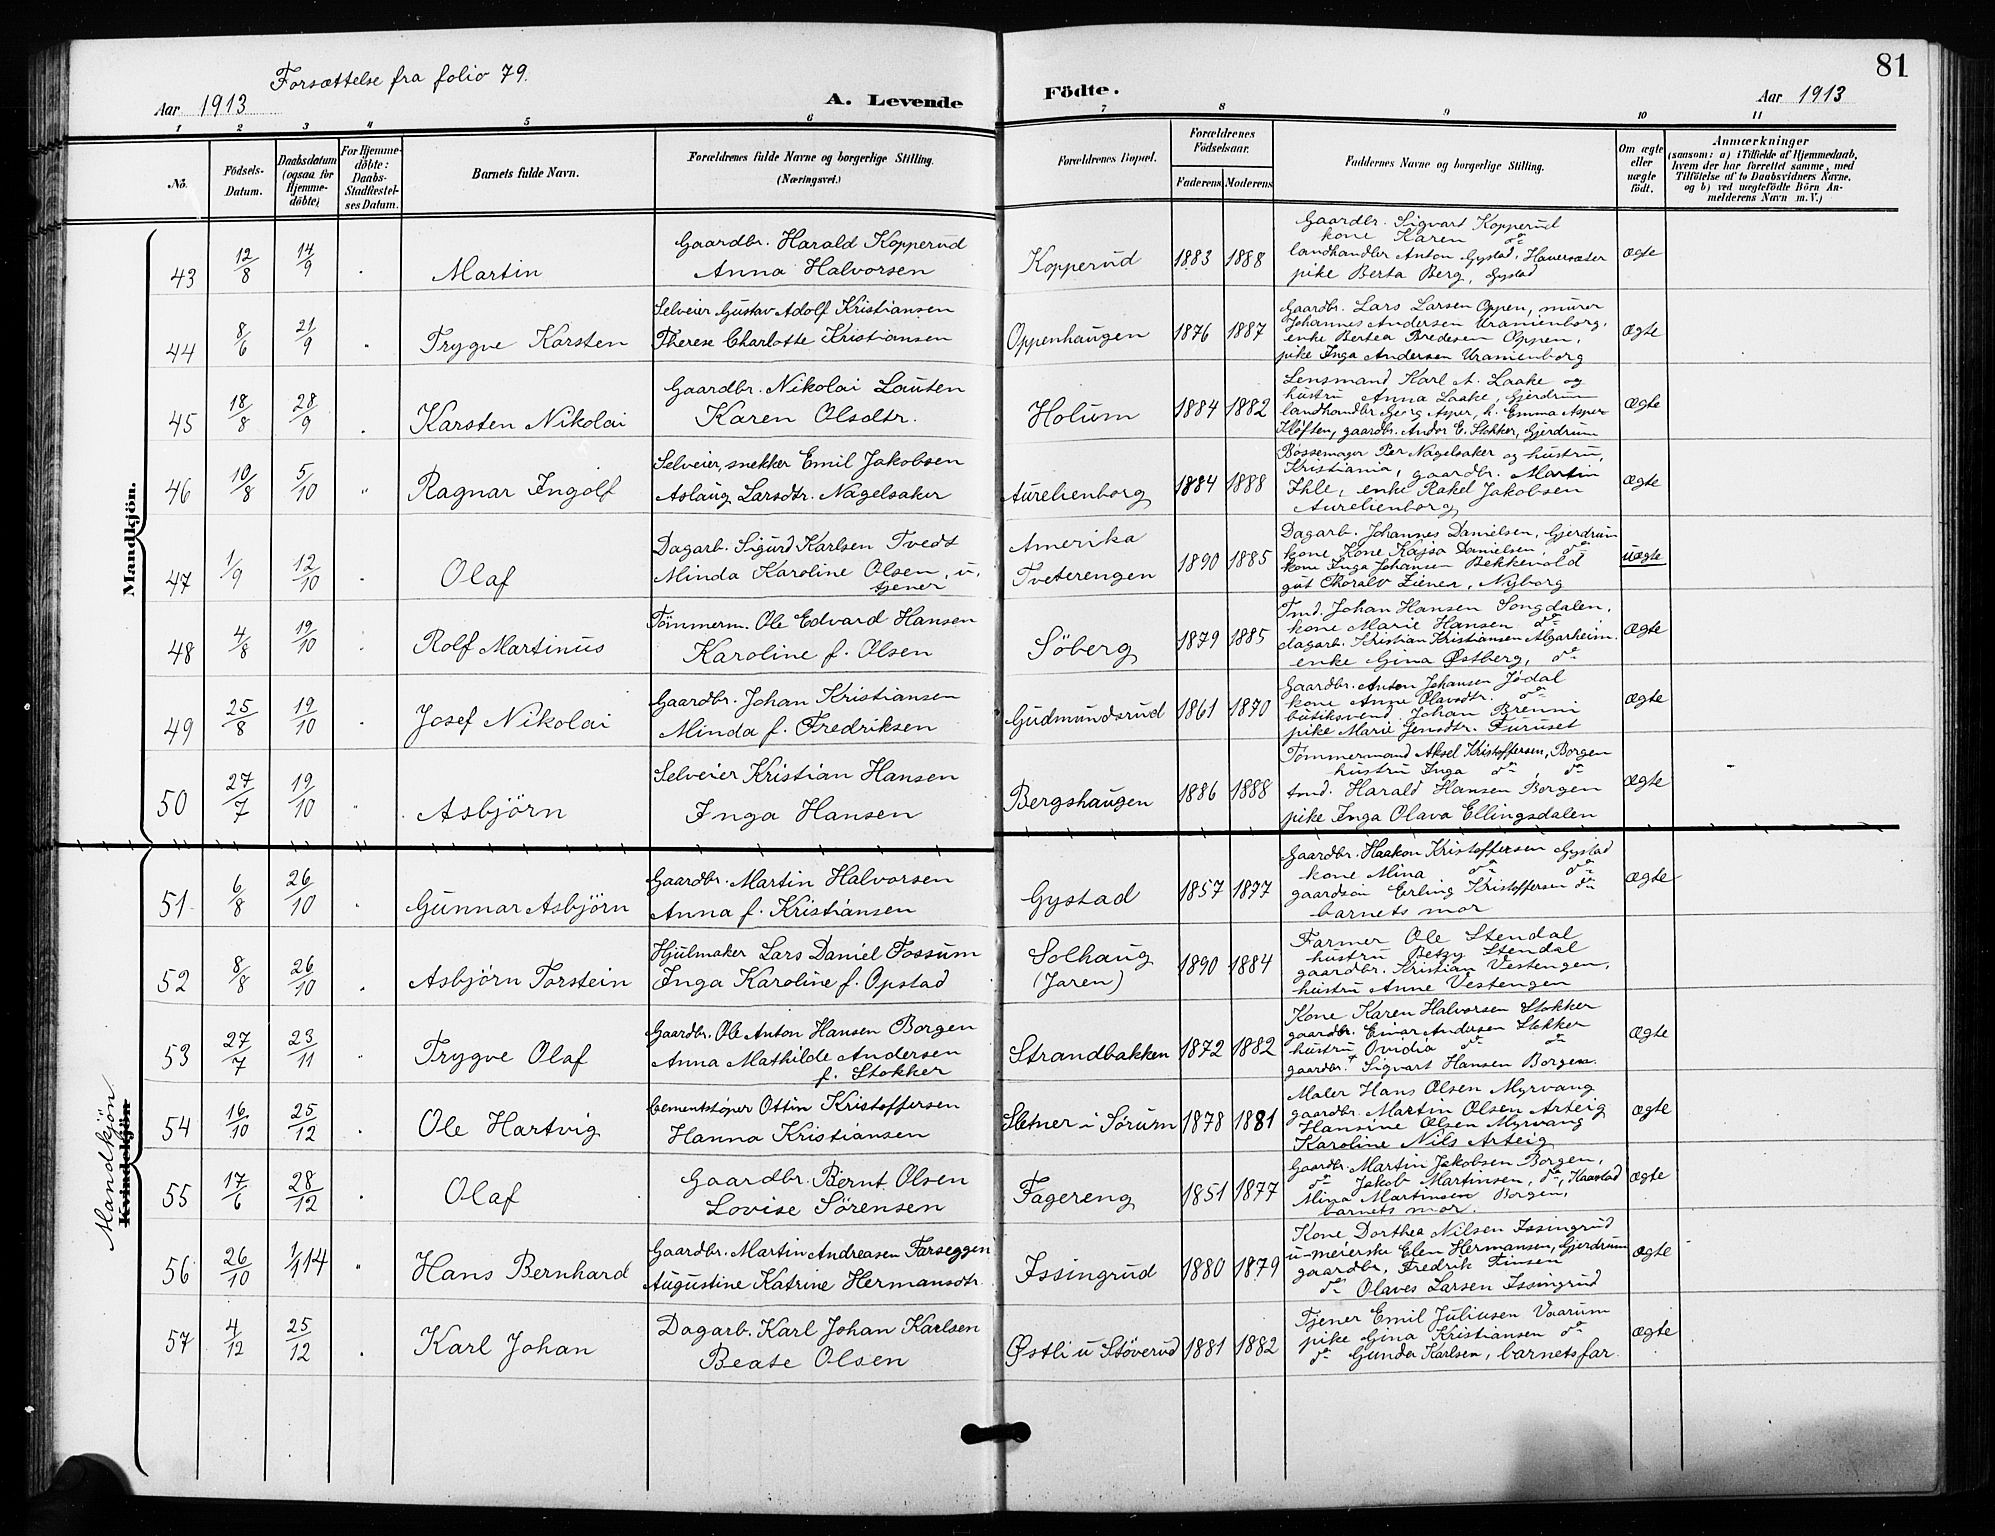 81
Forsættelse fra folio 79.
Aar 1913
A. Levende Födte.
Aar 1913
1 2 3 4 5 6 7 8 9 10 11
No.
Födsels-Datum.
Daabsdatum (ogsaa for Hjemme-döbte)
For Hjemme-döbte: Daabs-Stadfæstel-ses Datum.
Barnets fulde Navn.
Forældrenes fulde Navne og borgerlige Stilling. (Næringsvei.)
Forældrenes Bopæl.
Forældrenes Födselsaar.
Faderens Moderens
Faddernes Navne og borgerlige Stilling.
Om ægte eller uægte födt.
Anmærkninger
(saasom: a) i Tilfælde af Hjemmedaab, hvem der har forrettet samme, med Tilföielse af to Daabsvidners Navne, og b) ved uægtefödte Börn Anmelderens Navn m. V.)
Mandkjön.
43 12/8 14/9 Martin
Gaardbr. Harald Kopperud
Anna Halvorsen
Kopperud 1883 1888
Gaardbr. Sigvart Kopperud
kone Karen do
landhandler Anton Gystad, Haversæter
pike Berta Berg, Gystad
ægte
44 8/6 21/9 " Trygve Karsten
Selveier Gustav Adolf Kristiansen
Therese Charlotte Kristiansen
Oppenhaugen 1876 1887
Gaardbr. Lars Larsen Oppen, murer
Johannes Andersen Uranienborg,
enke Bertea Bredesen Oppen,
pike Inga Andersen Uranienborg
ægte
45 18/8 28/9 Karsten Nikolai
Gaardbr. Nikolai Lauten
Karen Olsdtr.
Holum 1884 1882
Lensmand Karl A. Laake og
hustru Anna Laake, Gjerdrum
landhandler Georg Asper, h. Emma Asper
Kløften, gaardbr. Andor E. Stokker, Gjerdrum
ægte
46 10/8 5/10 " Ragnar Ingolf
Selveier, snekker Emil Jakobsen
Aslaug Larsdtr. Nagelsaker
Aurelienborg 1884 1888
Bössemager Per Nagelsaker og hustru,
Kristiania, gaardbr. Martin
Ihle, enke Rakel Jakobsen
Aurelienborg
ægte
47 1/9 12/10 Olaf
Dagarb. Sigurd Karlsen Tvedt
Minda Karoline Olsen, u,
tjener
Amerika
Tveterengen 1890 1885
Dagarb. Johannes Danielsen, Gjerdrum
kone Kone Kajsa Danielsen, do
kone Inga Johansen Bekkevold
gut Thoralv Ziener, Nyborg
uægte
48 4/8 19/10 Rolf Martinus
Tömmerm. Ole Edvard Hansen
Karoline f. Olsen
Söberg 1879 1885
Tmd. Johan Hansen Songdalen,
kone Marie Hansen do
dagarb. Kristian Kristiansen Algarheim.
enke Gina Østberg, do
ægte
49 25/8 19/10 Josef Nikolai
Gaardbr. Johan Kristiansen
Minda f. Fredriksen
Gudmundsrud 1861 1870
Gaardbr. Anton Johansen Jødal
kone Anne Olavsdtr. do
butiksvend Johan Brenni
pike Marie Jensdtr. Furuset
ægte
50 27/7 19/10 " Asbjörn
Selveier Kristian Hansen
Inga Hansen
Bergshaugen 1886 1888
Tømmermand Aksel Kristoffersen, Borgen
hustru Inga do do
tmd. Harald Hansen Borgen
pike Inga Olava Ellingsdalen
ægte
Mandkjön.
Kvindekjön
51 6/8 26/10 Gunnar Asbjörn
Gaardbr. Martin Halvorsen
Anna f. Kristiansen
Gystad 1857 1877
Gaardbr. Haakon Kristoffersen Gystad
kone Mina do do
gaardsön Erling Kristoffersen do
barnets mor
ægte
52 8/8 26/10 Asbjörn Torstein
Hjulmaker Lars Daniel Fossum
Inga Karoline f. Opstad
Solhaug
(Jaren) 1890 1884
Farmer Ole Stendal
hustru Betzy Stendal
gaardbr. Kristian Vestengen,
hustru Anne Vestengen
53 27/7 23/11 Trygve Olaf
Gaardbr. Ole Anton Hansen Borgen
Anna Mathilde Andersen
f. Stokker
Strandbakken 1872 1882
Kone Karen Halvorsen Stokker
gaardbr. Einar Andersen Stokker
hustru Ovidia do do
gaardbr. Sigvart Hansen Borgen.
ægte
54 16/10 25/12 Ole Hartvig
Cementstöper Ottin Kristoffersen
Hanna Kristiansen
Sletner i Sørum 1878 1881
Maler Hans Olsen Myrvang
gaardbr. Martin Olsen Arteig
Hansine Olsen Myrvang
Karoline Nils Arteig
ægte
55 17/6 28/12 Olaf
Gaardbr. Bernt Olsen
Lovise Sørensen
Fagereng 1851 1877
Gaardbr. Martin Jakobsen Borgen,
do Jakob Martinsen, do, Haastad
Mina Martinsen Borgen,
barnets mor.
ægte
56 26/10 1/1 14 " Hans Bernhard
Gaardbr. Martin Andreasen Farseggen
Augustine Katrine Hermansdtr.
Issingrud 1880 1879
Kone Dorthea Nilsen Issingrud
u-meierske Elen Hermansen, Gjerdrum
gaardbr. Fredrik Finsen
do Olaves Larsen Issingrud
ægte
57 4/12 25/12 Karl Johan
Dagarb. Karl Johan Karlsen
Beate Olsen
Østli u Støverud 1881 1882
Tjener Emil Juliusen Vaarum
pike Gina Kristiansen do
do Gunda Karlsen, barnets far.
ægte